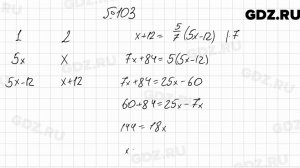 GDZ.RU
№103
1 2
5x x
5x-12 x+12
x+12 = 5/7 (5x-12) |·7
7x+84 = 5(5x-12)
7x+84 = 25x-60
60+84 = 25x-7x
144 = 18x
x
GDZ.RU